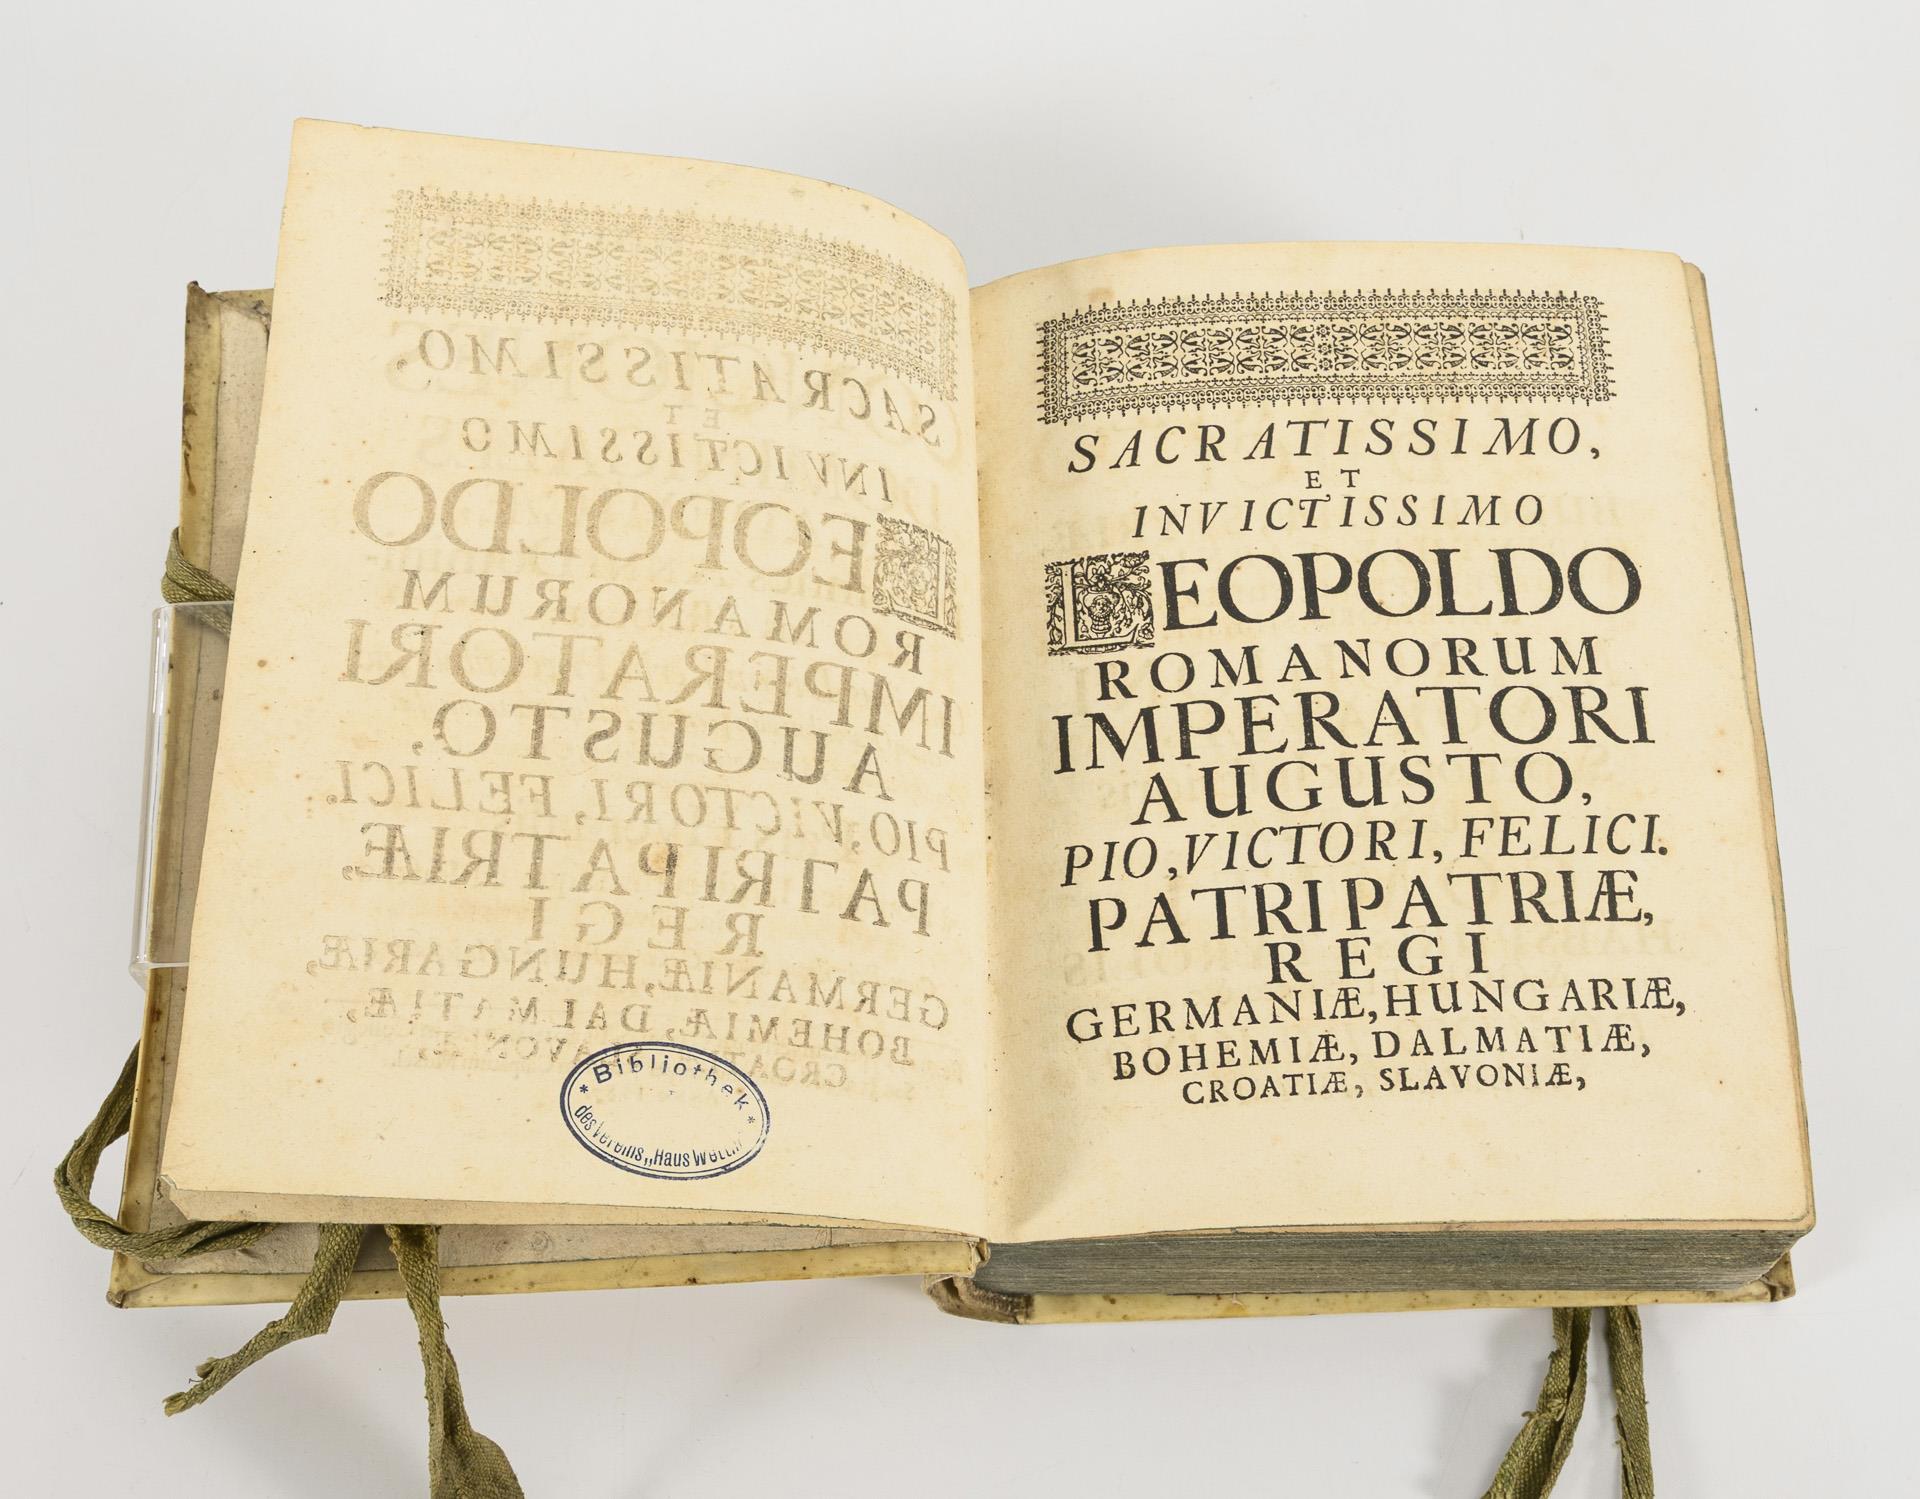 Bibliothek
des Vereins „Haus
SACRATISSIMO,
ET
INVICTISSIMO
LEOPOLDO
ROMANORUM
IMPERATORI
AUGUSTO,
PIO, VICTORI, FELICI.
PATRI PATRIÆ,
REGI
GERMANIÆ, HUNGARIÆ,
BOHEMIÆ, DALMATIÆ,
CROATIÆ, SLAVONIÆ,